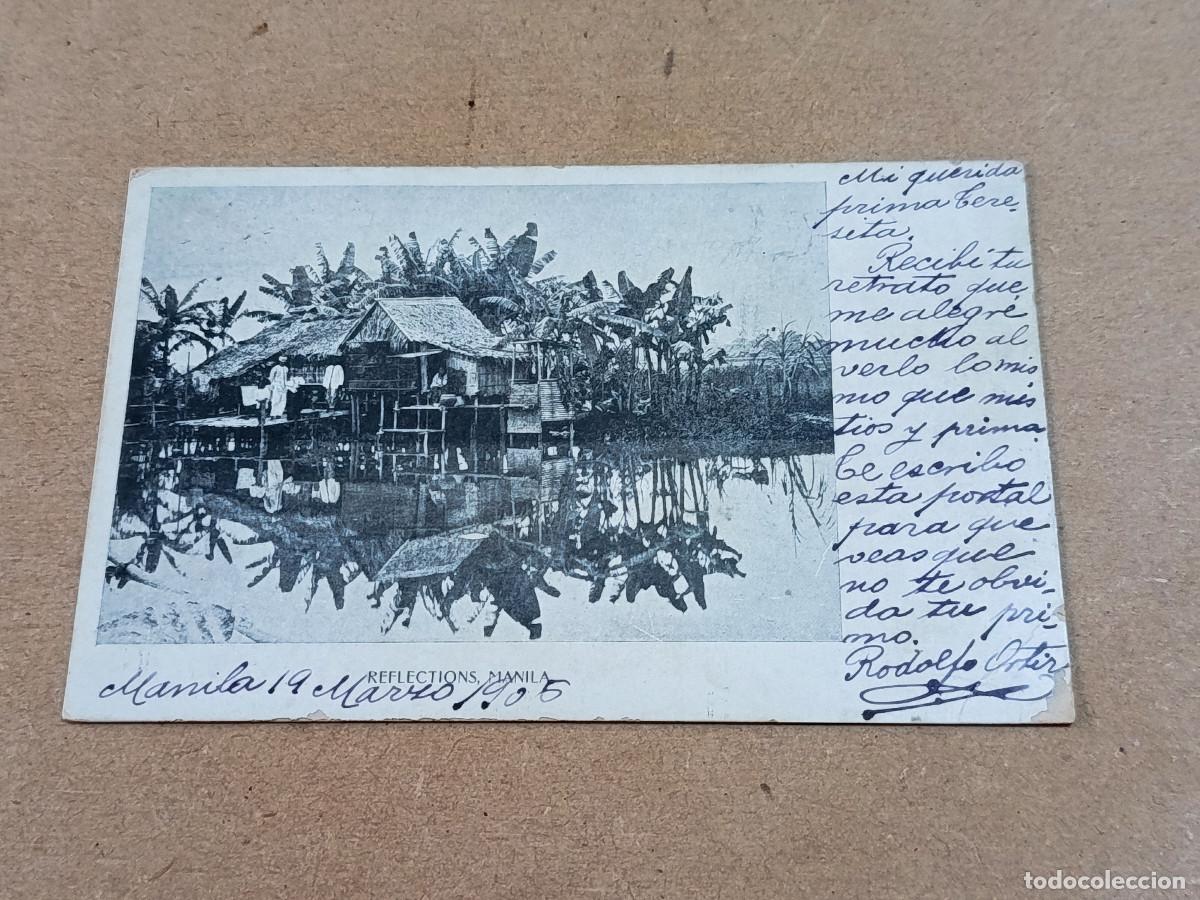 Mi querida
prima Tere-
sita.
Recibí tu
retrato que
me alegré
mucho al
verlo lo mis
mo que mis
tios y prima.
Te escribo
esta portal
para que
veas que
no te obvi-
da tu pri-
mo.
Rodolfo Ortiz
REFLECTIONS, MANILA
Manila 19 Marzo 1905
todocoleccion